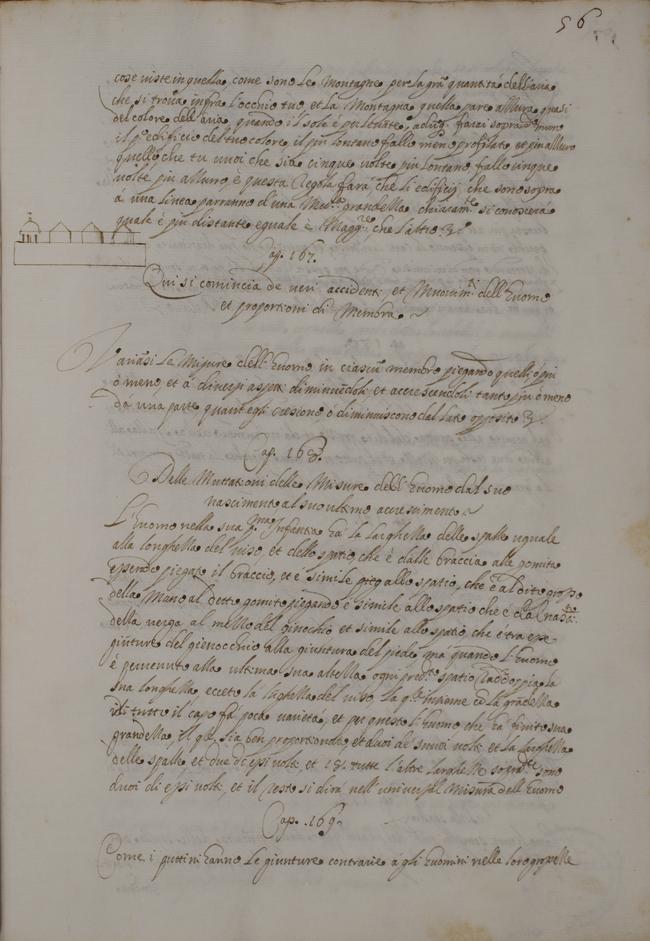 56
cose viste in quella come sono le Montagne per la grã quantità dell'aria
che si trova infra l'occhio tuo, et la Montagna quella pare azzura, quasi
del colore dell'aria, quando il sole è per levãte, farai sopra d.º muro
il p.º edificio del tuo colore, il più lontano fallo meno profilato, et più azzuro
quello che tu vuoi che sia cinque volte più lontano fallo cinque
volte più azzurro, e questa Regola farà che li edificij che sono sopra
à una linea parranno d'una grandezza, chiaram.te si conoscerà
quale è più distante equale è Magg.re che l'altro
Cap. 167.
Qui si comincia de varij accidenti, et Movim.ti dell'Huomo
et proportioni di Membra
Variãsi le Misure dell'Huomo in ciascũ membro piegando quelli più
ò meno, et à diversi aspetti diminuẽdoli, et accrescendoli tanto più ò meno
da una parte quant'egli cresiono, ò diminuiscono dal lato opposito
Cap. 168.
Delle Muttationi delle Misure dell'Huomo dal suo
nascimento al suo ultimo accrescimento
L'Huomo nella sua p.ma Infantia hà la larghezza delle spalle uguale
alla longhezza del viso, et dello spatio, che è dalle braccia alle gomita
essendo piegato il braccio, et è simile allo spatio, che è al dito grosso
della Mano al detto gomito piegando è simile allo spatio che è dal
della verga al mezzo del ginochio et simile allo spatio che è tra
giũture del gienocchio alla giuntura del piede, ma quando l'Huomo
è pervenuto alla ultima sua altezza, ogni pred.º spatio Raddoppia la
sua longhezza, eccetto la lõghezza del viso, la q.le insieme cõ la grãdezza
di tutto il capo fà poca varietà, et per questo l'Huomo che hà finito sua
grandezza, il q.le sia ben proportionato, et duoi de' suoi volti et la larghezza
delle spalle et due di essi volti, et tutte l'altre larghezze sono
duoi di essi volti, et il resto si dirà nell'universal Misura dell'Huomo
Cap. 169.
Come i puttini hanno le giunture contrarie à gli huomini nelle loro grossezze